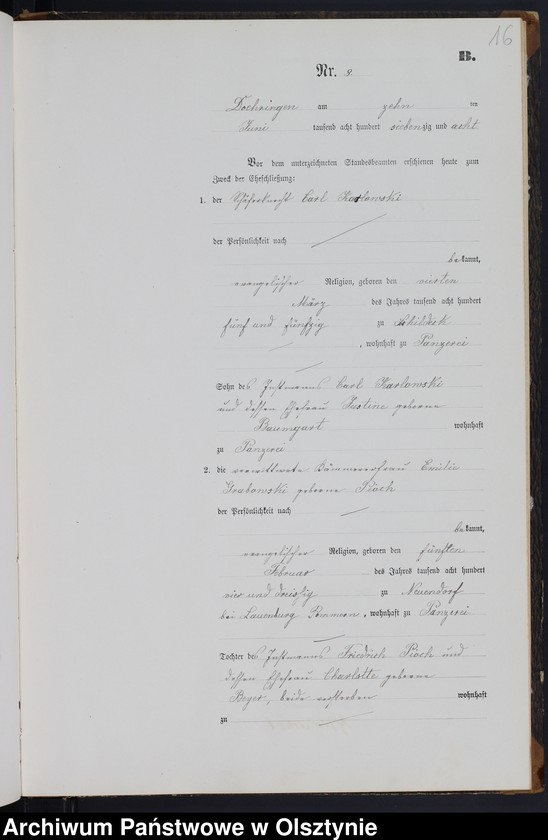 16
B.
Nr. 8.
Doehringen am zehn ten
Juni tausend acht hundert siebenzig und acht
Vor dem unterzeichneten Standesbeamten erschienen heute zum
Zweck der Eheschließung:
1. der Schäferknecht Carl Karlowski
der Persönlichkeit nach
be kannt,
evangelischer Religion, geboren den vierten
März des Jahres tausend acht hundert
fünf und fünfzig zu Schildeck
, wohnhaft zu Panzerei
Sohn des Instmanns Carl Karlowski
und dessen Ehefrau Justine geborne
Baumgart wohnhaft
zu Panzerei
2. die verwittwete Kämmererfrau Emilie
Grabowski geborne Pioch
der Persönlichkeit nach
be kannt,
evangelischer Religion, geboren den fünften
Februar des Jahres tausend acht hundert
vier und dreißig zu Neuendorf
bei Lauenburg Pommern, wohnhaft zu Panzerei
Tochter des Instmanns Friedrich Pioch und
dessen Ehefrau Charlotte geborene
Beyer, beide verstorben wohnhaft
zu
Archiwum Państwowe w Olsztynie